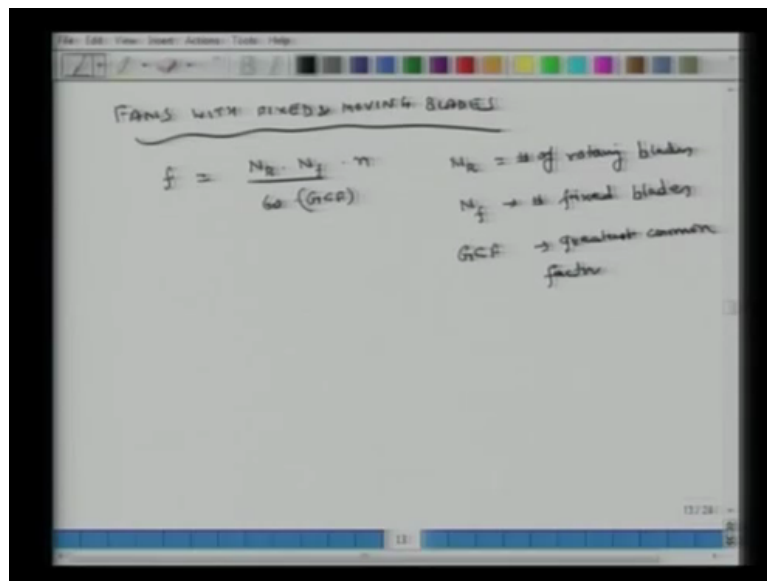 File Edit View Insert Actions Tools Help
FANS WITH FIXED & MOVING BLADES
f = N_R . N_f . n / 60 (GCF)
N_R = # of rotating blades
N_f → # fixed blades
GCF → greatest common
factor
13 / 28
13